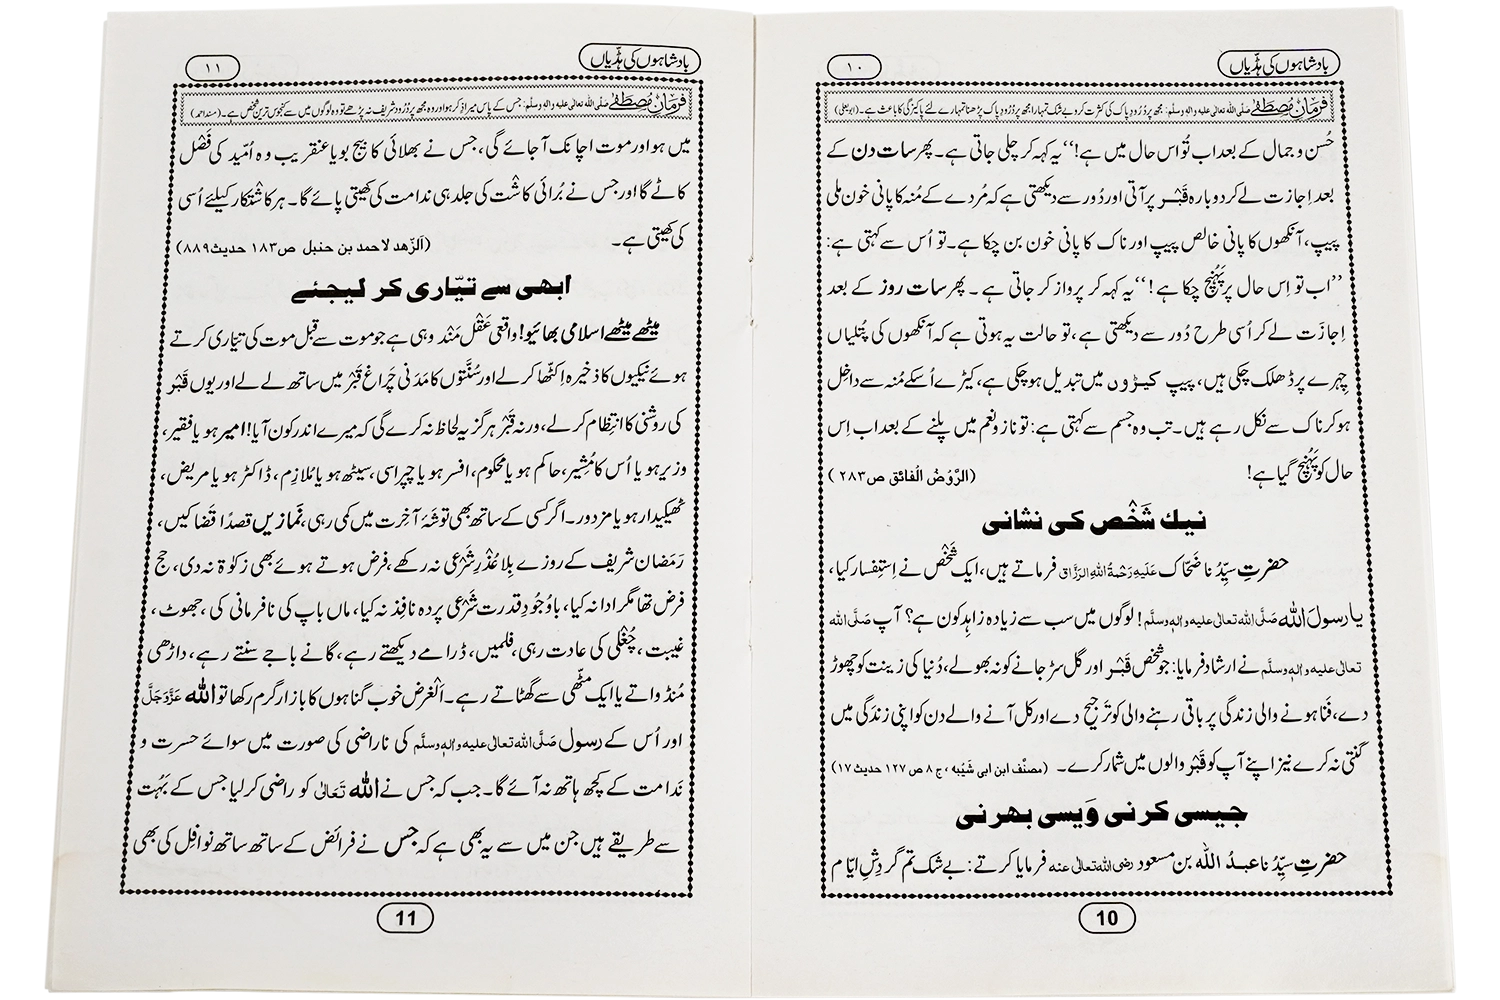 بادشاہوں کی ہڈّیاں
۱۰
فرمانِ مصطَفٰے صلی اللہ تعالٰی علیہ واٰلہٖ وسلم: مجھ پر دُرُودِ پاک کی کثرت کرو بے شک تمہارا مجھ پر دُرُودِ پاک پڑھنا تمہارے لئے پاکیزگی کا باعث ہے۔ (ابو یعلیٰ)
حُسن و جمال کے بعد اب تُو اس حال میں ہے!‘‘ یہ کہہ کر چلی جاتی ہے۔ پھر سات دن کے
بعد اِجازت لے کر دوبارہ قَبْر پر آتی اور دُور سے دیکھتی ہے کہ مُردے کے مُنہ کا پانی خون ملی
پیپ، آنکھوں کا پانی خالِص پیپ اور ناک کا پانی خون بن چکا ہے۔ تو اُس سے کہتی ہے:
’’اب تو اِس حال پر پَہُنچ چکا ہے!‘‘ یہ کہہ کر پرواز کر جاتی ہے۔ پھر سات روز کے بعد
اِجازَت لے کر اُسی طرح دُور سے دیکھتی ہے، تو حالت یہ ہوتی ہے کہ آنکھوں کی پُتلیاں
چہرے پر ڈھلک چکی ہیں، پیپ کیڑوں میں تبدیل ہو چکی ہے، کیڑے اُسکے مُنہ سے داخِل
ہو کر ناک سے نکل رہے ہیں۔ تب وہ جسم سے کہتی ہے: تو ناز و نِعَم میں پلنے کے بعد اب اِس
حال کو پَہُنچ گیا ہے! (الرَّوْضُ الْفائق ص۲۸۳)
نیک شَخْص کی نشانی
حضرتِ سیِّدُنا ضَحّاک عَلَیْہِ رَحْمَۃُ اللہِ الرَّزَّاق فرماتے ہیں، ایک شَخْص نے اِستِفسار کیا،
یا رسولَ اللہ صَلَّی اللہ تعالٰی علیہ واٰلہٖ وسلَّم! لوگوں میں سب سے زیادہ زاہِد کون ہے؟ آپ صَلَّی اللہ
تعالٰی علیہ واٰلہٖ وسلَّم نے ارشاد فرمایا: جو شخص قَبْر اور گل سڑ جانے کو نہ بھولے، دُنیا کی زینت کو چھوڑ
دے، فَنا ہونے والی زندگی پر باقی رہنے والی کو تَرجیح دے اور کل آنے والے دن کو اپنی زندَگی میں
گنتی نہ کرے نیز اپنے آپ کو قَبْر والوں میں شمار کرے۔ (مصنَّف ابن ابی شَیْبہ، ج۸ ص۱۲۷ حدیث۱۷)
جیسی کرنی وَیسی بھرنی
حضرتِ سیِّدُنا عبدُ اللہ بن مسعود رضی اللہ تعالٰی عنہ فرمایا کرتے: بے شک تم گردِشِ ایّام
10
بادشاہوں کی ہڈّیاں
۱۱
فرمانِ مصطَفٰے صلی اللہ تعالٰی علیہ واٰلہٖ وسلم: جس کے پاس میرا ذکر ہو اور وہ مجھ پر دُرُود شریف نہ پڑھے تو وہ لوگوں میں سے کنجوس ترین شخص ہے۔ (مسند احمد)
میں ہو اور موت اچانک آجائے گی، جس نے بھلائی کا بیج بویا عنقریب وہ اُمّید کی فَصْل
کاٹے گا اور جس نے بُرائی کاشْت کی جلد ہی ندامت کی کھیتی پائے گا۔ ہر کاشْتکار کیلئے اُسی
کی کھیتی ہے۔ (الزّھد لاحمد بن حنبل ص۱۸۳ حدیث۸۸۹)
ابھی سے تیّاری کر لیجئے
میٹھے میٹھے اسلامی بھائیو! واقعی عَقْل مَنْد وہی ہے جو موت سے قبل موت کی تیّاری کرتے
ہوئے نیکیوں کا ذخیرہ اِکٹّھا کر لے اور سُنَّتوں کا مَدَنی چَراغ قَبْر میں ساتھ لے لے اور یوں قَبْر
کی روشنی کا انتِظام کر لے، ورنہ قَبْر ہرگز یہ لحاظ نہ کرے گی کہ میرے اندر کون آیا! امیر ہو یا فقیر،
وزیر ہو یا اُس کا مُشِیر، حاکم ہو یا محکوم، افسر ہو یا چپراسی، سیٹھ ہو یا مُلازِم، ڈاکٹر ہو یا مریض،
ٹھیکیدار ہو یا مزدور۔ اگر کسی کے ساتھ بھی توشۂ آخِرت میں کمی رہی، نَمازیں قصدًا قَضا کیں،
رَمَضان شریف کے روزے بِلا عُذْرِ شَرْعی نہ رکھے، فرض ہوتے ہوئے بھی زکوٰۃ نہ دی، حج
فرض تھا مگر ادا نہ کیا، باوُجُودِ قدرت شَرْعی پردہ نافِذ نہ کیا، ماں باپ کی نافرمانی کی، جھوٹ،
غیبت، چُغْلی کی عادت رہی، فلمیں، ڈرامے دیکھتے رہے، گانے باجے سنتے رہے، داڑھی
مُنڈواتے یا ایک مٹّھی سے گھٹاتے رہے۔ اَلْغَرَض خوب گناہوں کا بازار گرم رکھا تو اللہ عَزَّوَجَلَّ
اور اُس کے رسول صَلَّی اللہ تعالٰی علیہ واٰلہٖ وسلَّم کی ناراضی کی صورت میں سوائے حسرت و
نَدامت کے کچھ ہاتھ نہ آئے گا۔ جب کہ جس نے اللہ تَعَالٰی کو راضی کر لیا جس کے بَہُت
سے طریقے ہیں جن میں سے یہ بھی ہے کہ جس نے فرائض کے ساتھ ساتھ نوافِل کی بھی
11